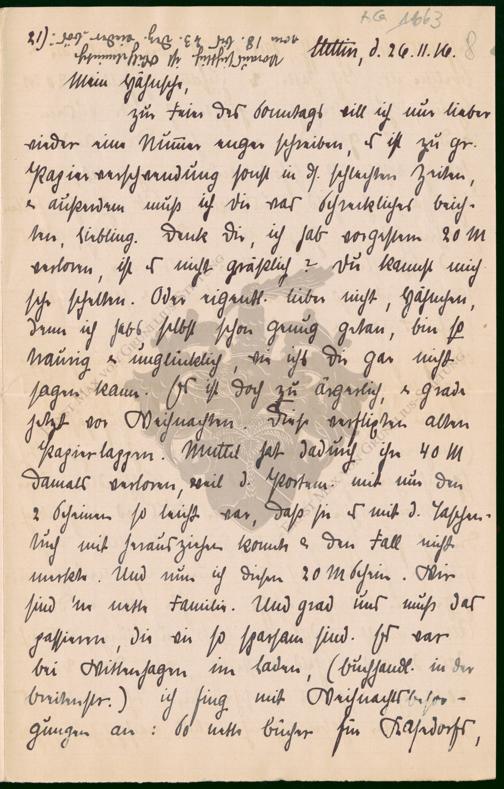 Stettin, d. 26.11.16.
Mein Hänschen,
zur Feier des Sonntags will ich nur lieber
wieder eine Nummer enger schreiben, es ist zu gr.
Papierverschwendung sonst in d. schlechten Zeiten,
u. außerdem muß ich Dir was Schreckliches beich-
ten, Liebling. Denk Dir, ich hab vorgestern 20 M
verloren, ist es nicht gräßlich? Du kannst mich
sehr schelten. Oder eigentl. lieber nicht, Hänschen,
denn ich habs selbst schon genug getan, bin so
traurig u. unglücklich, wie ichs Dir gar nicht
sagen kann. Es ist doch zu ärgerlich, u. grade
jetzt vor Weihnachten. Diese verflixten alten
Papierlappen. Muttel hat dadurch ihre 40 M
damals verloren, weil d. Portem. mit nur den
2 Scheinen so leicht war, daß sie es mit d. Taschen-
tuch mit herausziehen konnte u. den Fall nicht
merkte. Und nun ich diesen 20 M Schein. Wir
sind 'ne nette Familie. Und grad uns muß das
passieren, die wir so sparsam sind. Es war
bei Wittenhagen im Laden, (Buchhandl. in der
Breitestr.) ich fing mit Weihnachtsbesor-
gungen an: So nette Bücher für